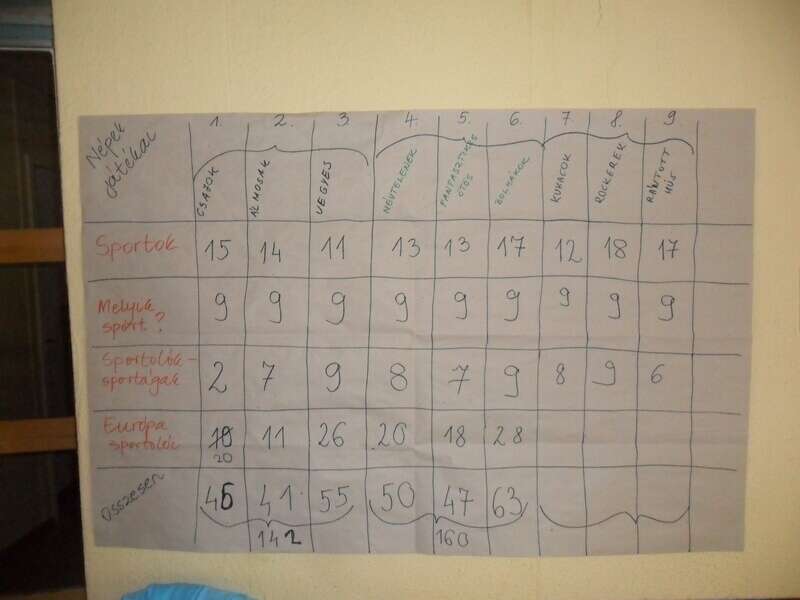 Népek játékai
1. 2. 3. 4. 5. 6. 7. 8. 9.
CSAJOK ÁLMOSAK VEGYES NÉVTELENEK FANTASZTIKUS ÖTÖS KUKACOK ROCKEREK RÁNTOTT HÚS
Sportok 15 14 11 13 13 17 12 18 17
Melyik sport? 9 9 9 9 9 9 9 9 9
Sportolók - sportágak 2 7 9 8 7 9 8 9 6
Európa sportolók 11 26 20 18 28
20
összesen 46 41 55 50 47 63
142 160